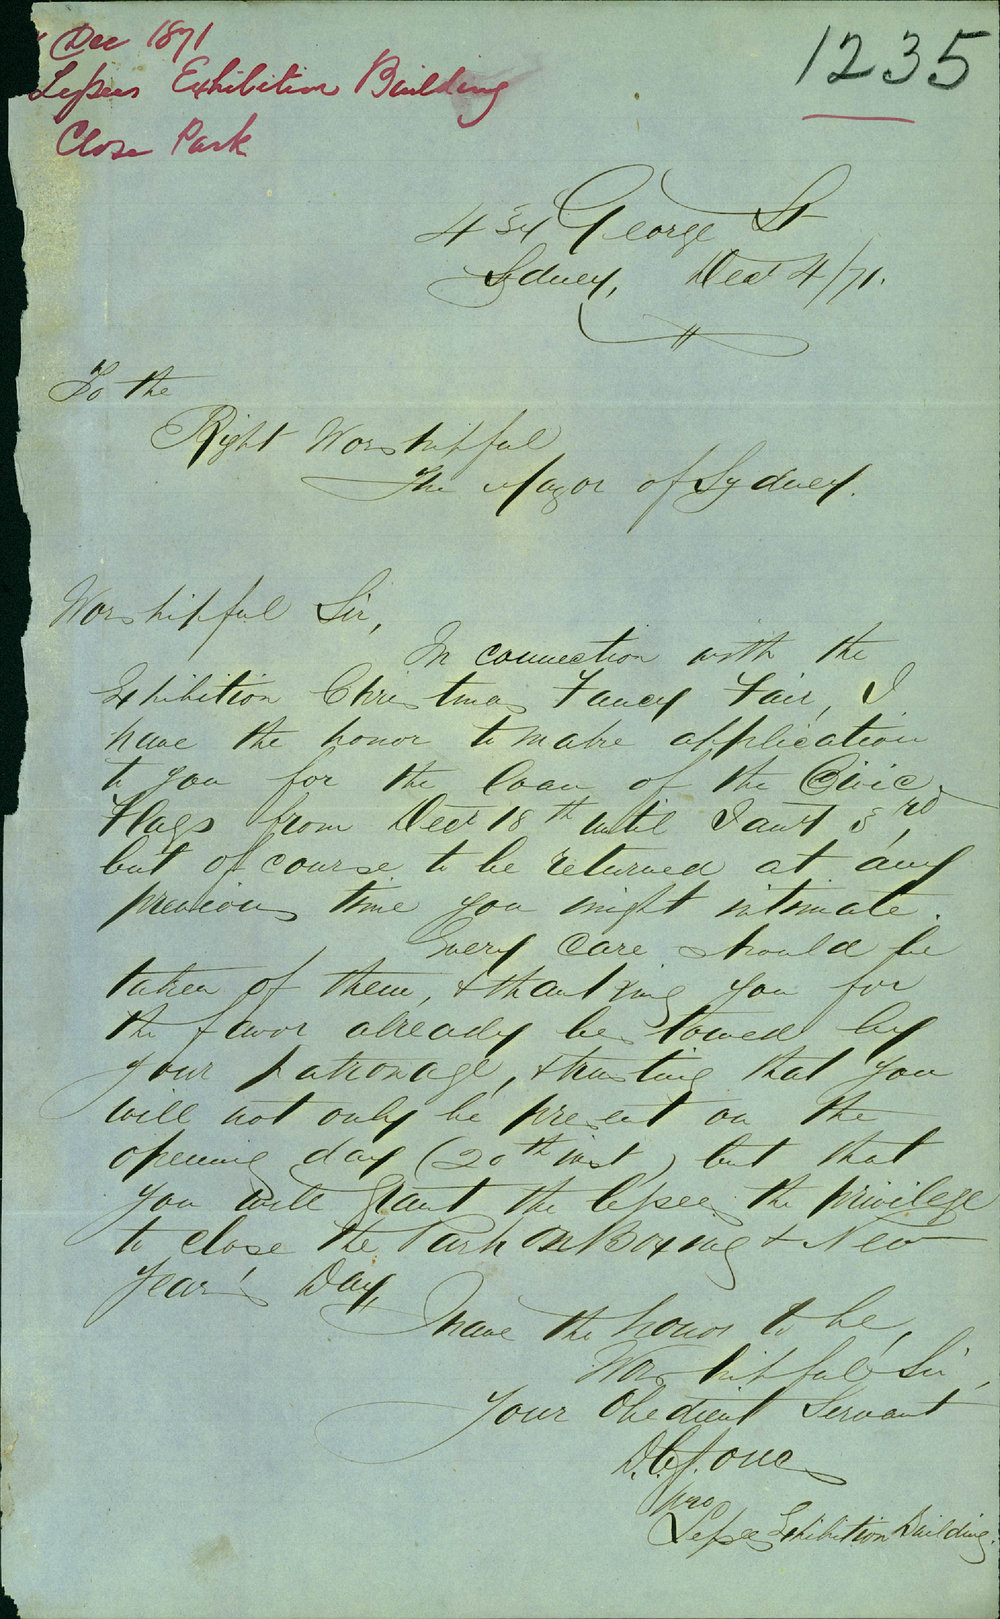 Dec 1871
Lessees Exhibition Building
Close Park
1235
434 George St
Sydney, Decr 4/71.
To the
Right Worshipful
The Mayor of Sydney.
Worshipful Sir,
In connection with the
Exhibition Christmas Fancy Fair, I
have the honor to make application
to you for the loan of the Civic
Flags from Decr 18th until Jany 3rd,
but of course to be returned at any
previous time you might intimate.
Every care should be
taken of them, & thanking you for
the favor already bestowed by
your patronage, & trusting that you
will not only be present on the
opening day (20th inst) but that
you will grant the lessees the privilege
to close the Park on Boxing & New
Year's Day,
I have the honor to be,
Worshipful Sir,
Your Obedient Servant
Jones
pro
Lessees Exhibition Building.